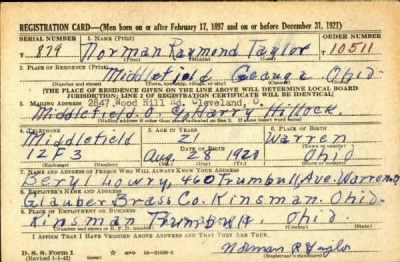 REGISTRATION CARD—(Men born on or after February 17, 1897 and on or before December 31, 1921)
SERIAL NUMBER 1. NAME (Print) ORDER NUMBER
S 879 Norman Raymond Taylor 10511
(First) (Middle) (Last)
2. PLACE OF RESIDENCE (Print)
Middlefield Geauga Ohio
(Number and street) (Town, township, village, or city) (County) (State)
[THE PLACE OF RESIDENCE GIVEN ON THE LINE ABOVE WILL DETERMINE LOCAL BOARD
JURISDICTION; LINE 2 OF REGISTRATION CERTIFICATE WILL BE IDENTICAL]
3. MAILING ADDRESS 2847 Wood Hill Rd. Cleveland, O.
Middlefield, O. % Harry Hillock
[Mailing address if other than place indicated on line 2. If same insert word same]
4. TELEPHONE 5. AGE IN YEARS 6. PLACE OF BIRTH
Middlefield 21 Warren
DATE OF BIRTH (Town or county)
1253 Aug. 28 1920 Ohio
(Exchange) (Number) (Mo.) (Day) (Yr.) (State or country)
7. NAME AND ADDRESS OF PERSON WHO WILL ALWAYS KNOW YOUR ADDRESS
Beryl Lowry, 460 Trumbull, Ave. Warren O.
8. EMPLOYER'S NAME AND ADDRESS
Glauber Brass Co. Kinsman. Ohio.
9. PLACE OF EMPLOYMENT OR BUSINESS
Kinsman Trumbull Ohio.
(Number and street or R. F. D. number) (Town) (County) (State)
I AFFIRM THAT I HAVE VERIFIED ABOVE ANSWERS AND THAT THEY ARE TRUE.
D. S. S. Form 1
(Revised 1-1-42) (over)
Norman R Taylor
(Registrant's signature)